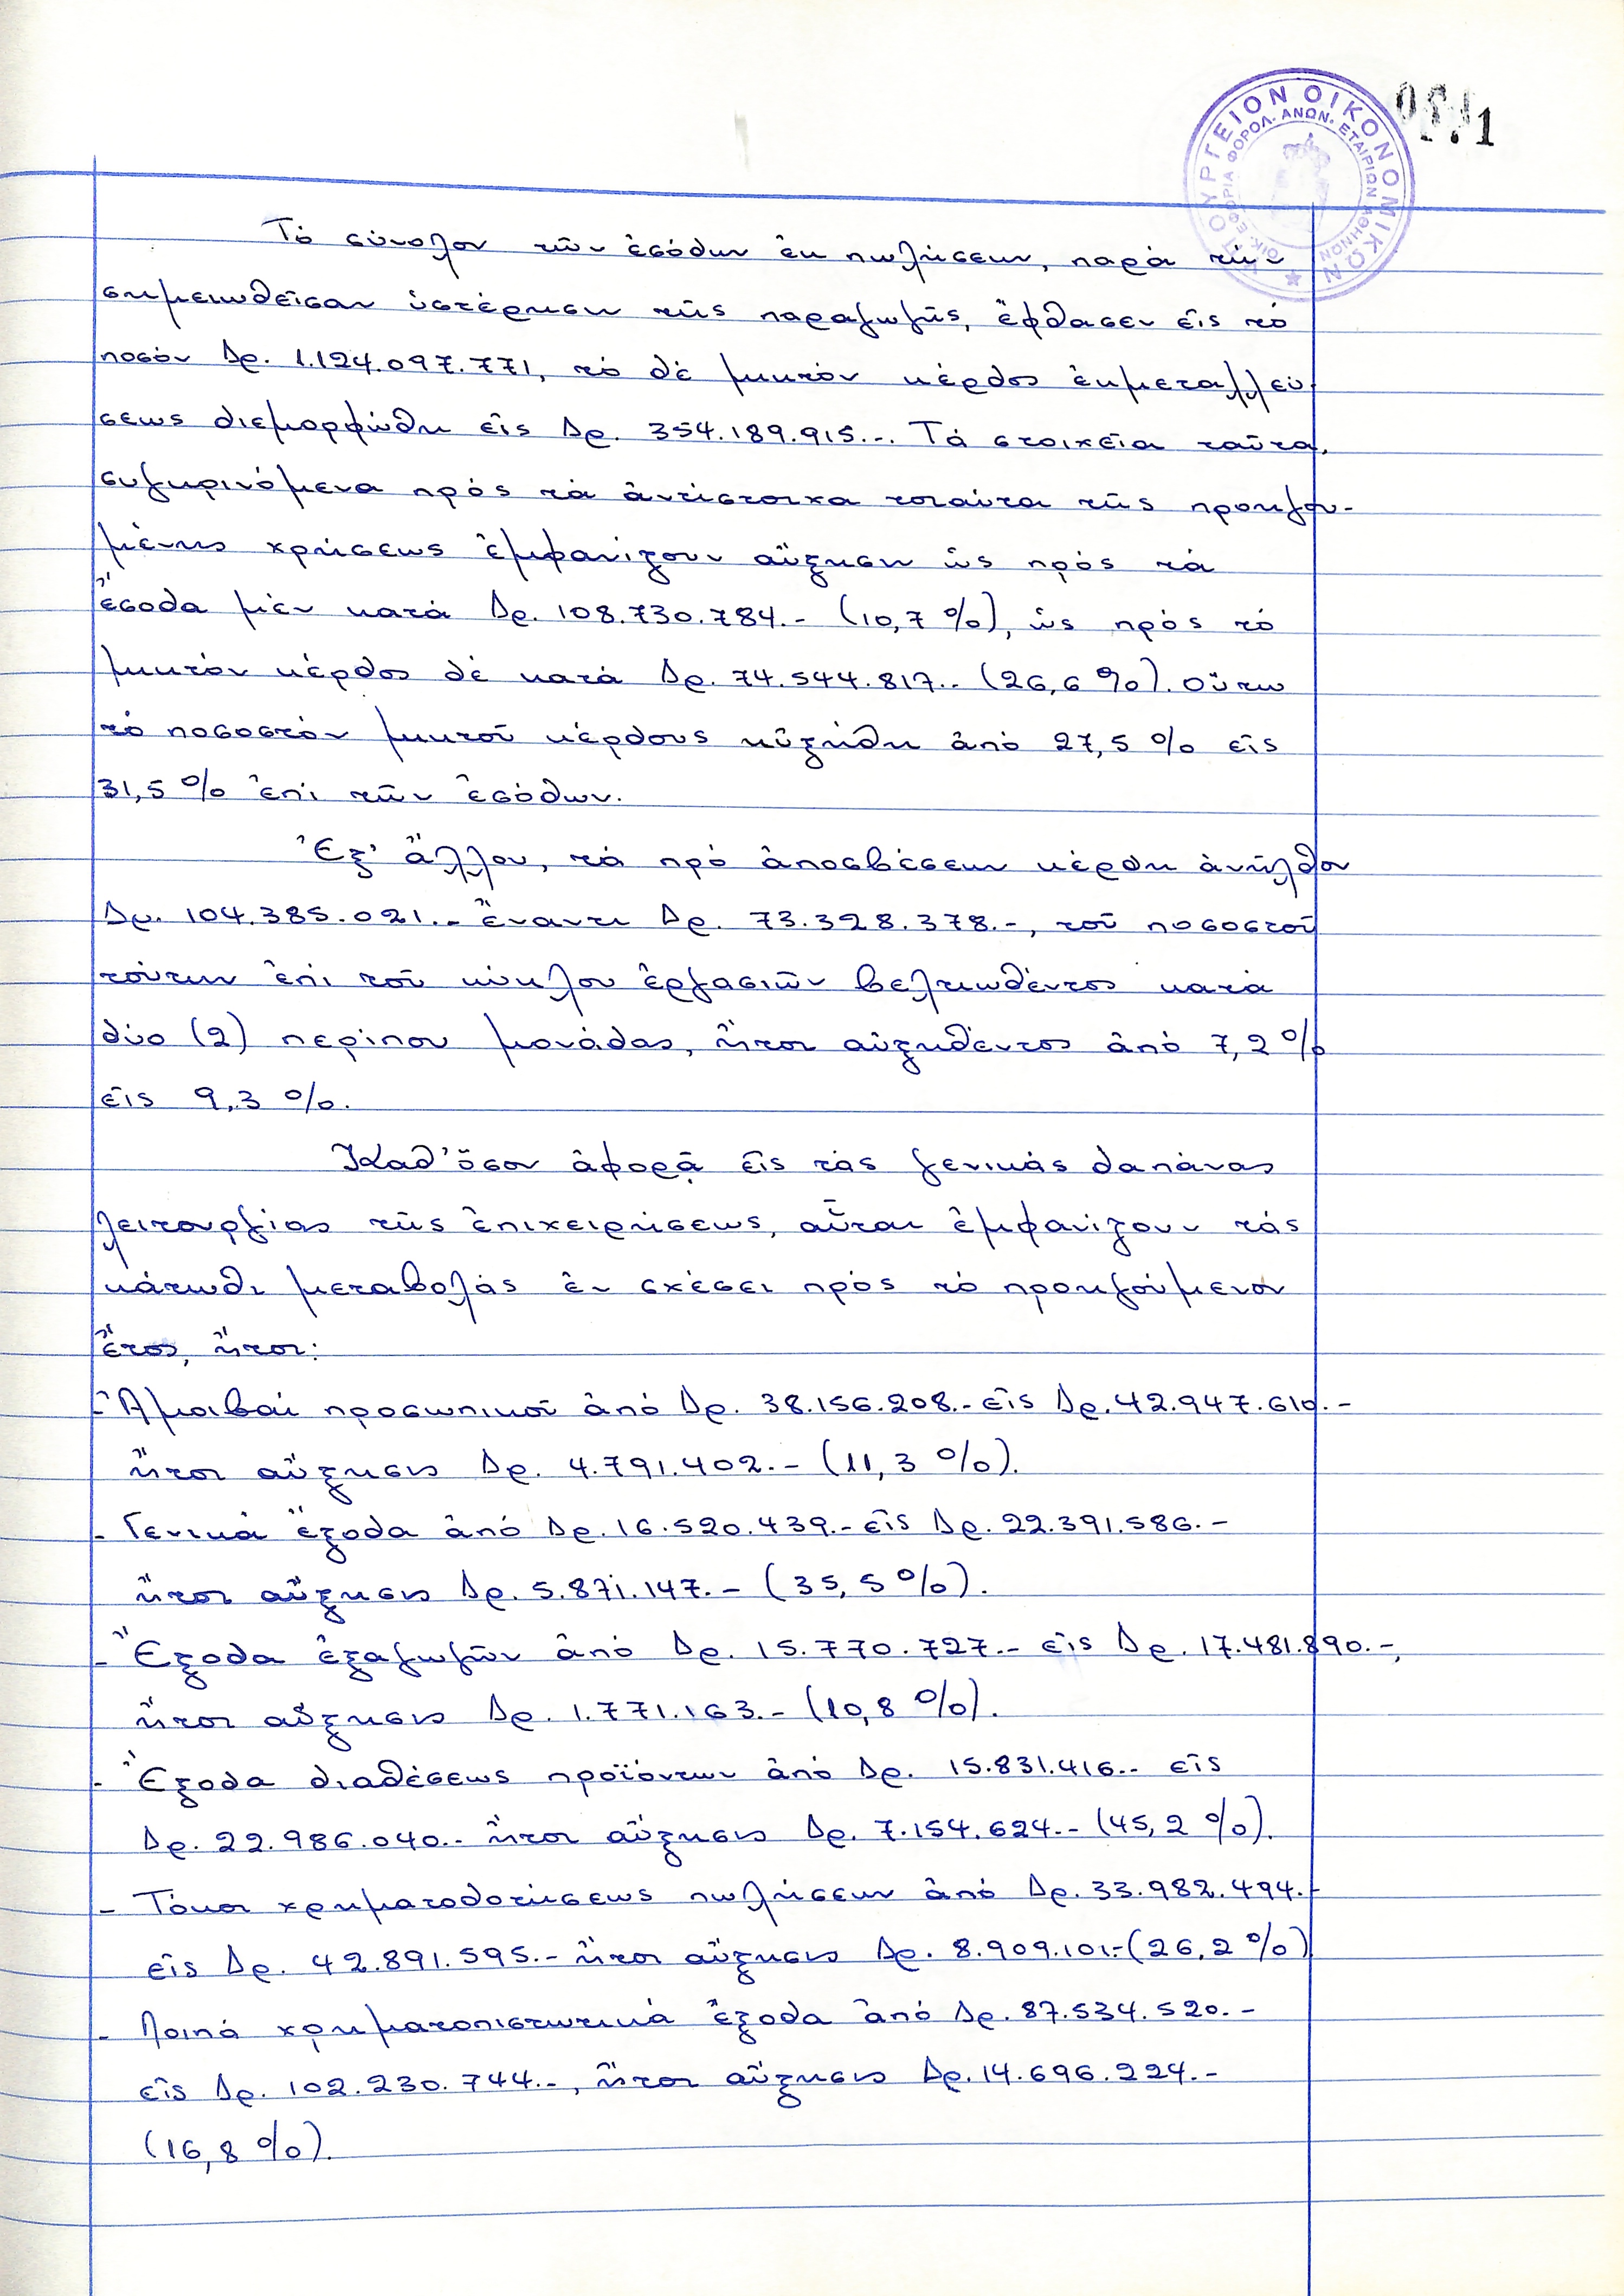 ΥΠΟΥΡΓΕΙΟΝ ΟΙΚΟΝΟΜΙΚΩΝ
ΟΙΚ. ΕΦΟΡΙΑ ΦΟΡΟΛ. ΑΝΩΝ. ΕΤΑΙΡΙΩΝ ΑΘΗΝΩΝ
Τό σύνολον τῶν ἐσόδων ἐκ πωλήσεων, παρά τήν
σημειωθεῖσαν ὑστέρησιν τῆς παραγωγῆς, ἔφθασεν εἰς τό
ποσόν Δρ. 1.124.097.771, τό δέ μικτόν κέρδος ἐκμεταλλεύ
σεως διεμορφώθη εἰς Δρ. 354.189.915.-. Τά στοιχεῖα ταῦτα,
συγκρινόμενα πρός τά ἀντίστοιχα τοιαῦτα τῆς προηγου-
μένης χρήσεως ἐμφανίζουν αὔξησιν ὡς πρός τά
ἔσοδα μέν κατά Δρ. 108.730.784.- (10,7 %), ὡς πρός τό
μικτόν κέρδος δέ κατά Δρ. 74.544.817.- (26,6 %). Οὕτω
τό ποσοστόν μικτοῦ κέρδους ηὐξήθη ἀπό 27,5 % εἰς
31,5 % ἐπί τῶν ἐσόδων.
Ἐξ' ἄλλου, τά πρό ἀποσβέσεων κέρδη ἀνῆλθον
Δρ. 104.385.021.- ἔναντι Δρ. 73.328.378.-, τοῦ ποσοστοῦ
τούτων ἐπί τοῦ κύκλου ἐργασιῶν βελτιωθέντος κατά
δύο (2) περίπου μονάδας, ἤτοι αὐξηθέντος ἀπό 7,2 %
εἰς 9,3 %.
Καθ' ὅσον ἀφορᾷ εἰς τάς γενικάς δαπάνας
λειτουργίας τῆς ἐπιχειρήσεως, αὗται ἐμφανίζουν τάς
κάτωθι μεταβολάς ἐν σχέσει πρός τό προηγούμενον
ἔτος, ἤτοι:
- Ἀμοιβαί προσωπικοῦ ἀπό Δρ. 38.156.208.- εἰς Δρ. 42.947.610.-
ἤτοι αὔξησις Δρ. 4.791.402.- (11,3 %).
- Γενικά ἔξοδα ἀπό Δρ. 16.520.439.- εἰς Δρ. 22.391.586.-
ἤτοι αὔξησις Δρ. 5.871.147.- (35,5 %).
- Ἔξοδα ἐξαγωγῶν ἀπό Δρ. 15.770.727.- εἰς Δρ. 17.481.890.-,
ἤτοι αὔξησις Δρ. 1.771.163.- (10,8 %).
- Ἔξοδα διαθέσεως προϊόντων ἀπό Δρ. 15.831.416.- εἰς
Δρ. 22.986.040.- ἤτοι αὔξησις Δρ. 7.154.624.- (45,2 %).
- Τόκοι χρηματοδοτήσεως πωλήσεων ἀπό Δρ. 33.982.494.-
εἰς Δρ. 42.891.595.- ἤτοι αὔξησις Δρ. 8.909.101.- (26,2 %)
- Λοιπά χρηματοπιστωτικά ἔξοδα ἀπό Δρ. 87.534.520.-
εἰς Δρ. 102.230.744.-, ἤτοι αὔξησις Δρ. 14.696.224.-
(16,8 %).